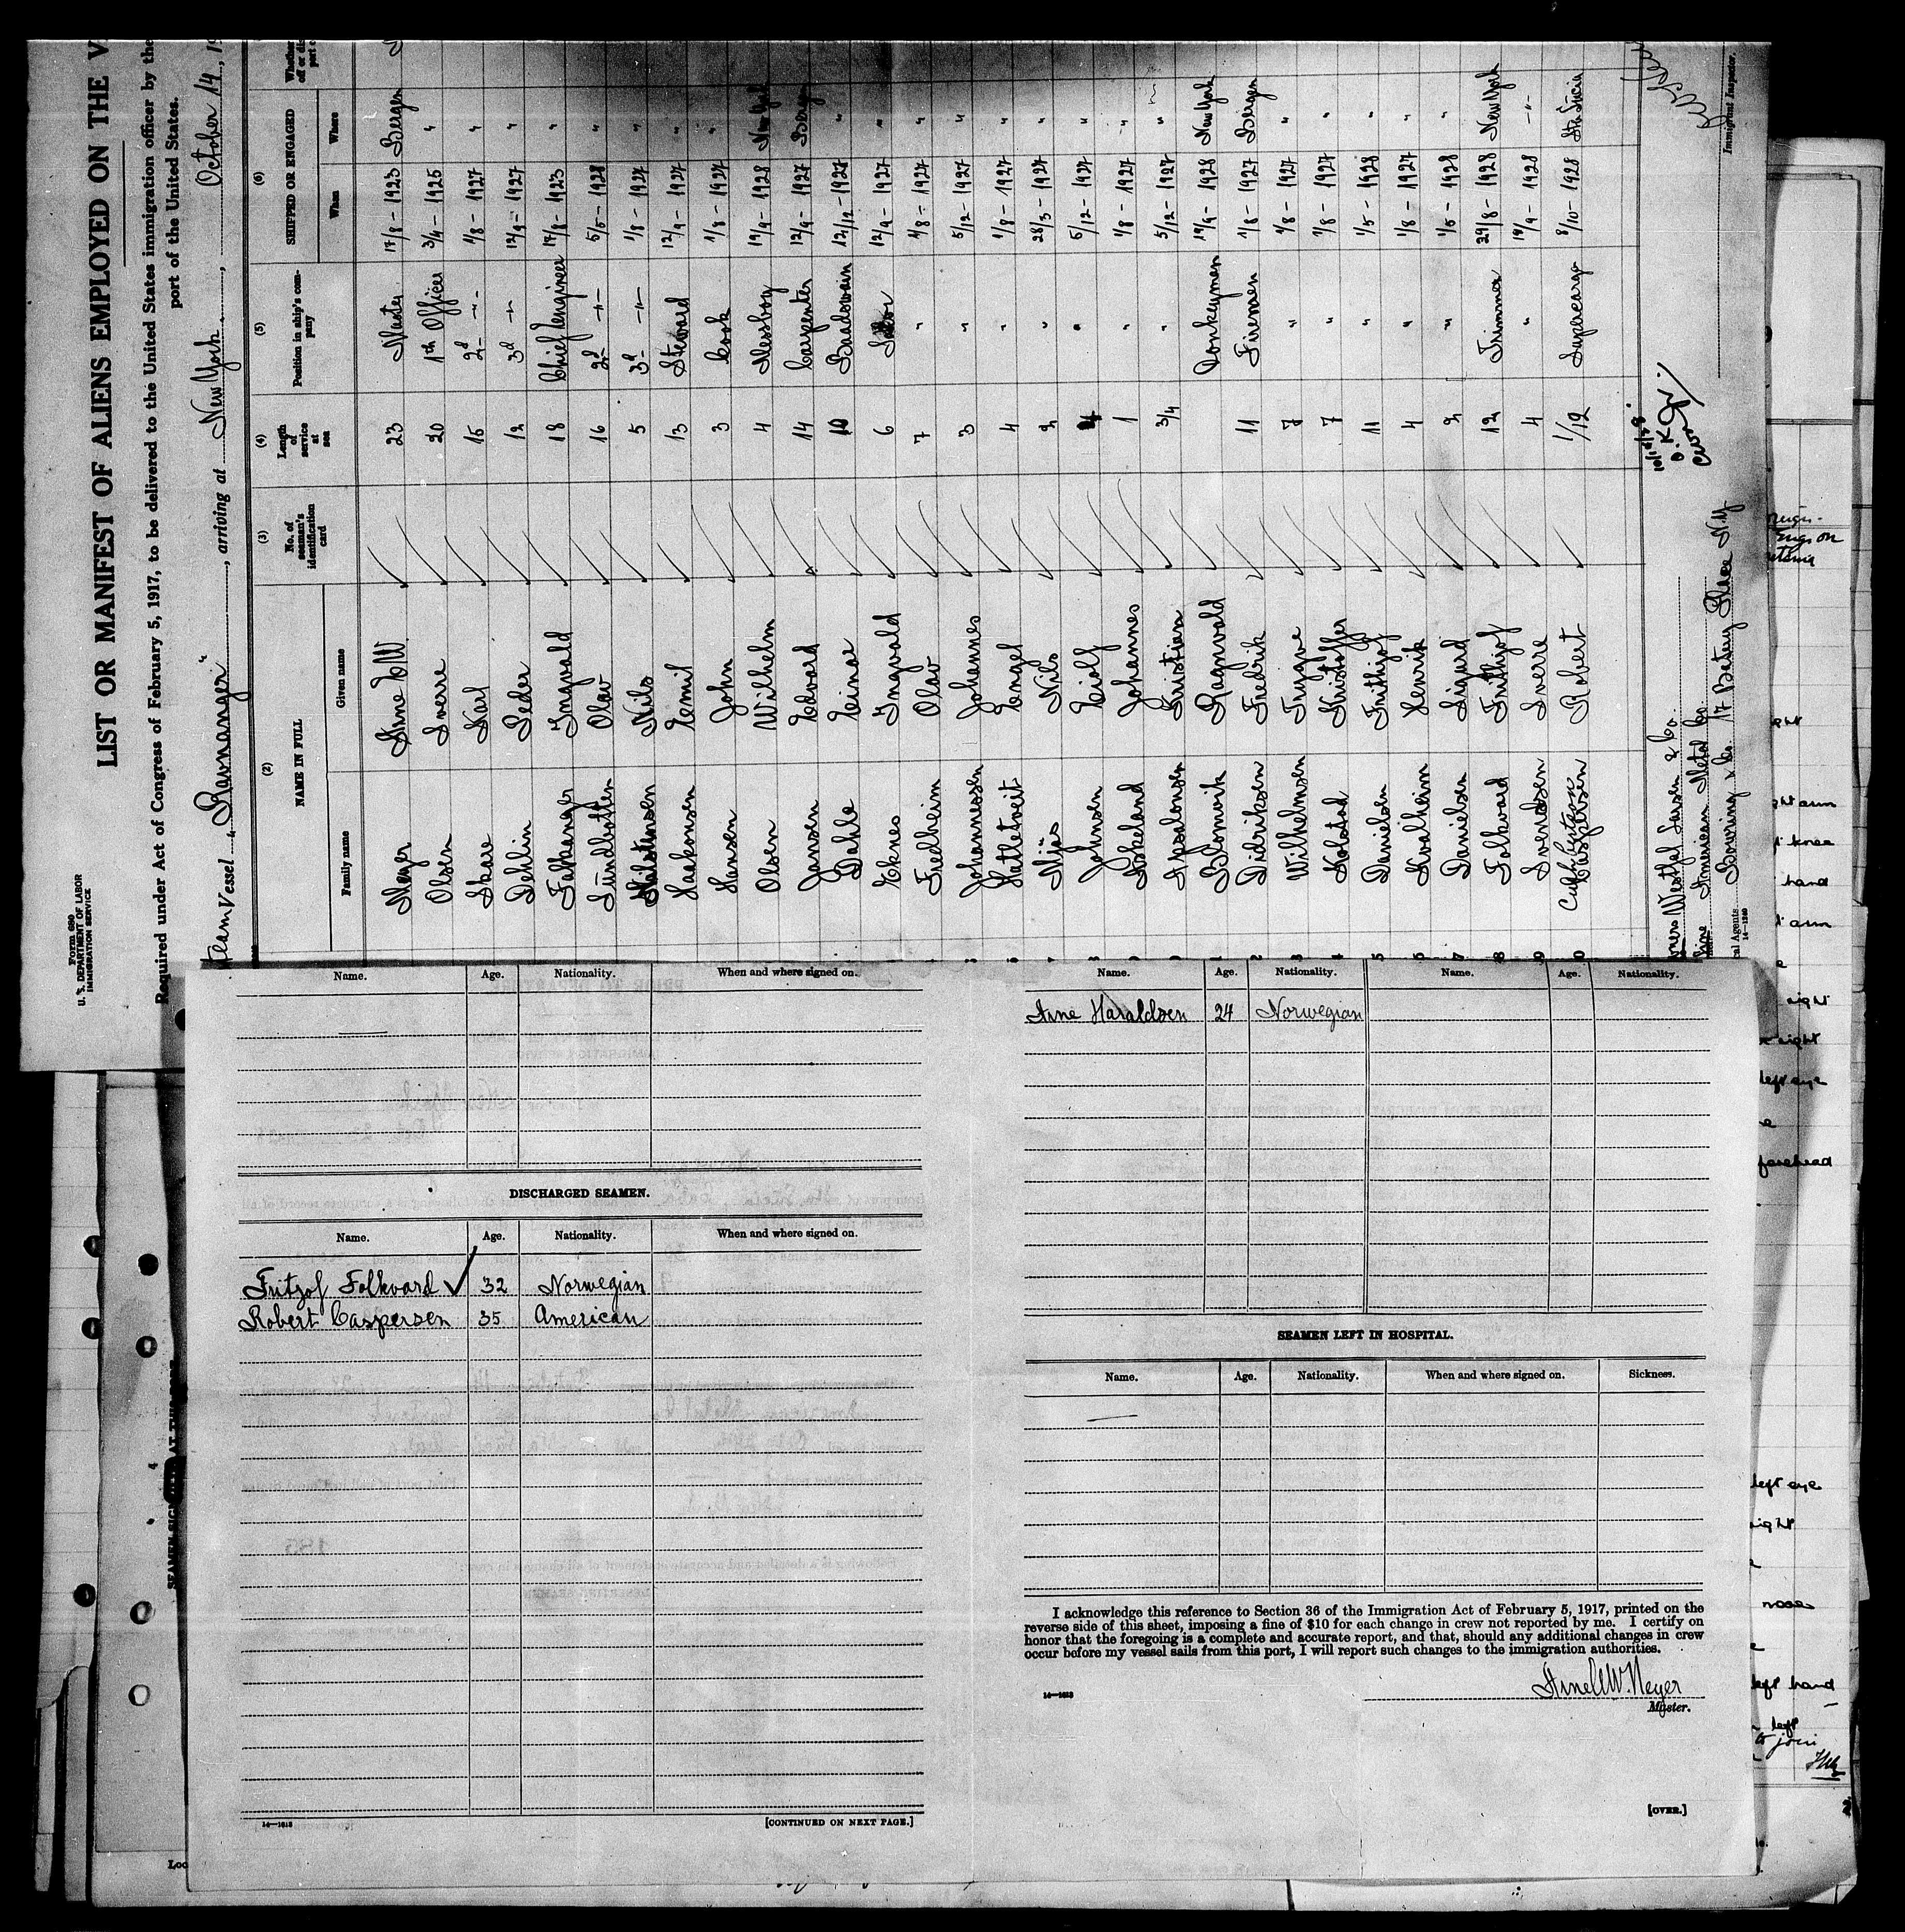 Form 680
U. S. DEPARTMENT OF LABOR
IMMIGRATION SERVICE
LIST OR MANIFEST OF ALIENS EMPLOYED ON THE V
Required under Act of Congress of February 5, 1917, to be delivered to the United States immigration officer by the
port of the United States.
team Vessel "Ravnanger", arriving at New York, October 14, 19
(2) (3) (4) (5) (6)
NAME IN FULL No. of seaman's identification card Length of service at sea Position in ship's company SHIPPED OR ENGAGED
Family name Given name When Where
Meyer Arne E W 23 Master 17/8 - 1923 Bergen
Olsen Sverre 20 1th Officer 3/4 - 1925 "
Skare Karl 15 2d -"- 1/8 - 1927 "
Dahlin Peder 12 3d -"- 12/9 - 1927 "
Falkanger Ingvald 18 Chief Engineer 17/8 - 1923 "
Sundbotten Olav 16 2d -"- 5/5 - 1928 "
Nils 5 3d -"- 1/8 - 1927 "
Haakonsen Emil 13 Steward 12/9 - 1927 "
Hansen John 3 Cook 1/8 - 1927 "
Olsen Wilhelm 4 Messboy 19/9 - 1928 New York
Jansen Edvard 14 Carpenter 12/9 - 1927 Bergen
Dahle Einar 10 Baadswain 12/12 - 1927 "
Eknes Ingvald 6 Sailor 12/9 - 1927 "
Fredheim Olav 7 " 1/8 - 1927 "
Johannessen Johannes 3 " 5/12 - 1927 "
Hatletveit Engel 4 " 1/8 - 1927 "
Mjøs Nils 2 " 28/3 - 1927 "
Johnsen Eiolf 4 " 5/12 - 1927 "
Askeland Johannes 1 " 1/8 - 1927 "
Absalonsen Kristian 3/4 " 5/12 - 1927 "
Blomvik Ragnvald Donkeyman 19/9 - 1928 New York
Didriksen Fredrik 11 Firemen 1/8 - 1927 Bergen
Wilhelmsen Trygve 7 " 1/8 - 1927 "
Kolstad Kristoffer 7 " 1/8 - 1927 "
Danielsen Frithjof 11 " 1/5 - 1928 "
Kvalheim Henrik 4 " 1/8 - 1927 "
Danielsen Sigurd 2 " 1/5 - 1928 "
Folkvard Frithjof 12 Trimmer 29/8 - 1928 New York
Svendsen Sverre 4 " 19/9 - 1928 -"-
Caspersen Robert 1/12 Supercargo 8/10 - 1928 Sta Lucia
ners Westfal Larsen & Co.
American Metal Co.
cal Agents Bowring & Co. 17 Batery Place N.Y
14—1240
O.K.
Immigrant Inspector.
Name. Age. Nationality. When and where signed on.
DISCHARGED SEAMEN.
Name. Age. Nationality. When and where signed on.
Fritzof Folkvard ✓ 32 Norwegian
Robert Caspersen 35 American
14—1813
[CONTINUED ON NEXT PAGE.]
Name. Age. Nationality. Name. Age. Nationality.
Arne Haraldsen 24 Norwegian
SEAMEN LEFT IN HOSPITAL.
Name. Age. Nationality. When and where signed on. Sickness.
I acknowledge this reference to Section 36 of the Immigration Act of February 5, 1917, printed on the
reverse side of this sheet, imposing a fine of $10 for each change in crew not reported by me. I certify on
honor that the foregoing is a complete and accurate report, and that, should any additional changes in crew
occur before my vessel sails from this port, I will report such changes to the immigration authorities.
Arne E W. Meyer
14—1813
Master.
[OVER.]
arm
knee
hand
arm
right
left eye
forehead
left eye
right
nose
left hand
left
to join